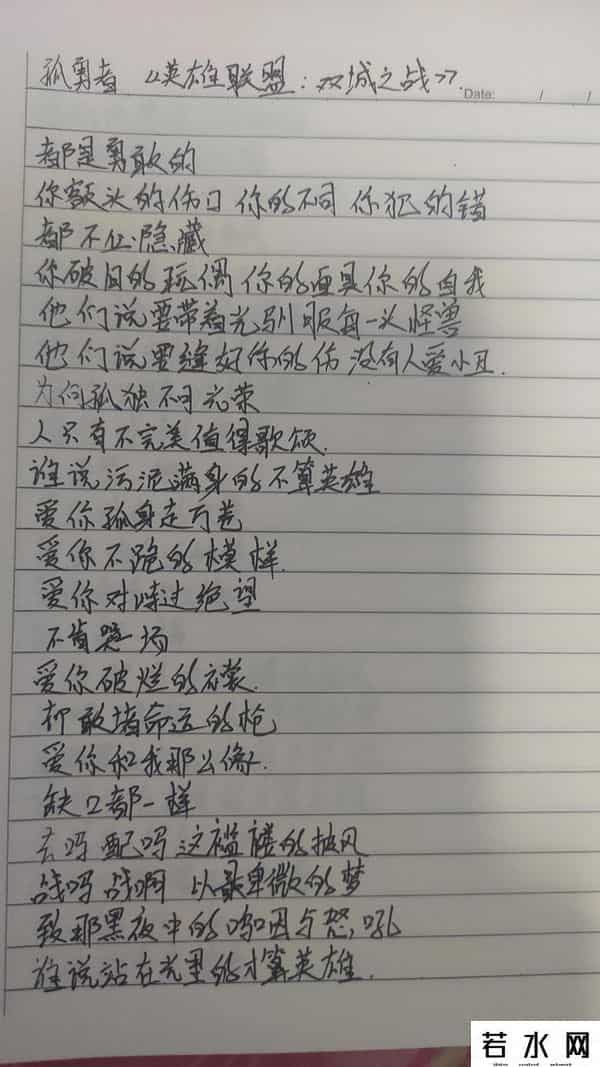 孤勇者 《英雄联盟:双城之战》.
Date: / /
都是勇敢的
你额头的伤口 你的不同 你犯的错
都不必隐藏
你破旧的玩偶 你的面具你的自我
他们说要带着光驯服每一头怪兽
他们说要缝好你的伤 没有人爱小丑.
为何孤独不可光荣
人只有不完美值得歌颂.
谁说污泥满身的不算英雄
爱你孤身走巷
爱你不跪的模样.
爱你对峙过绝望
不肯哭一场
爱你破烂的衣裳.
却敢堵命运的枪
爱你和我那么像.
缺口都一样
去吗 配吗 这褴褛的披风
战吗 战啊 以最卑微的梦
致那黑夜中的呜咽与怒吼
谁说站在光里的才算英雄.
若水网